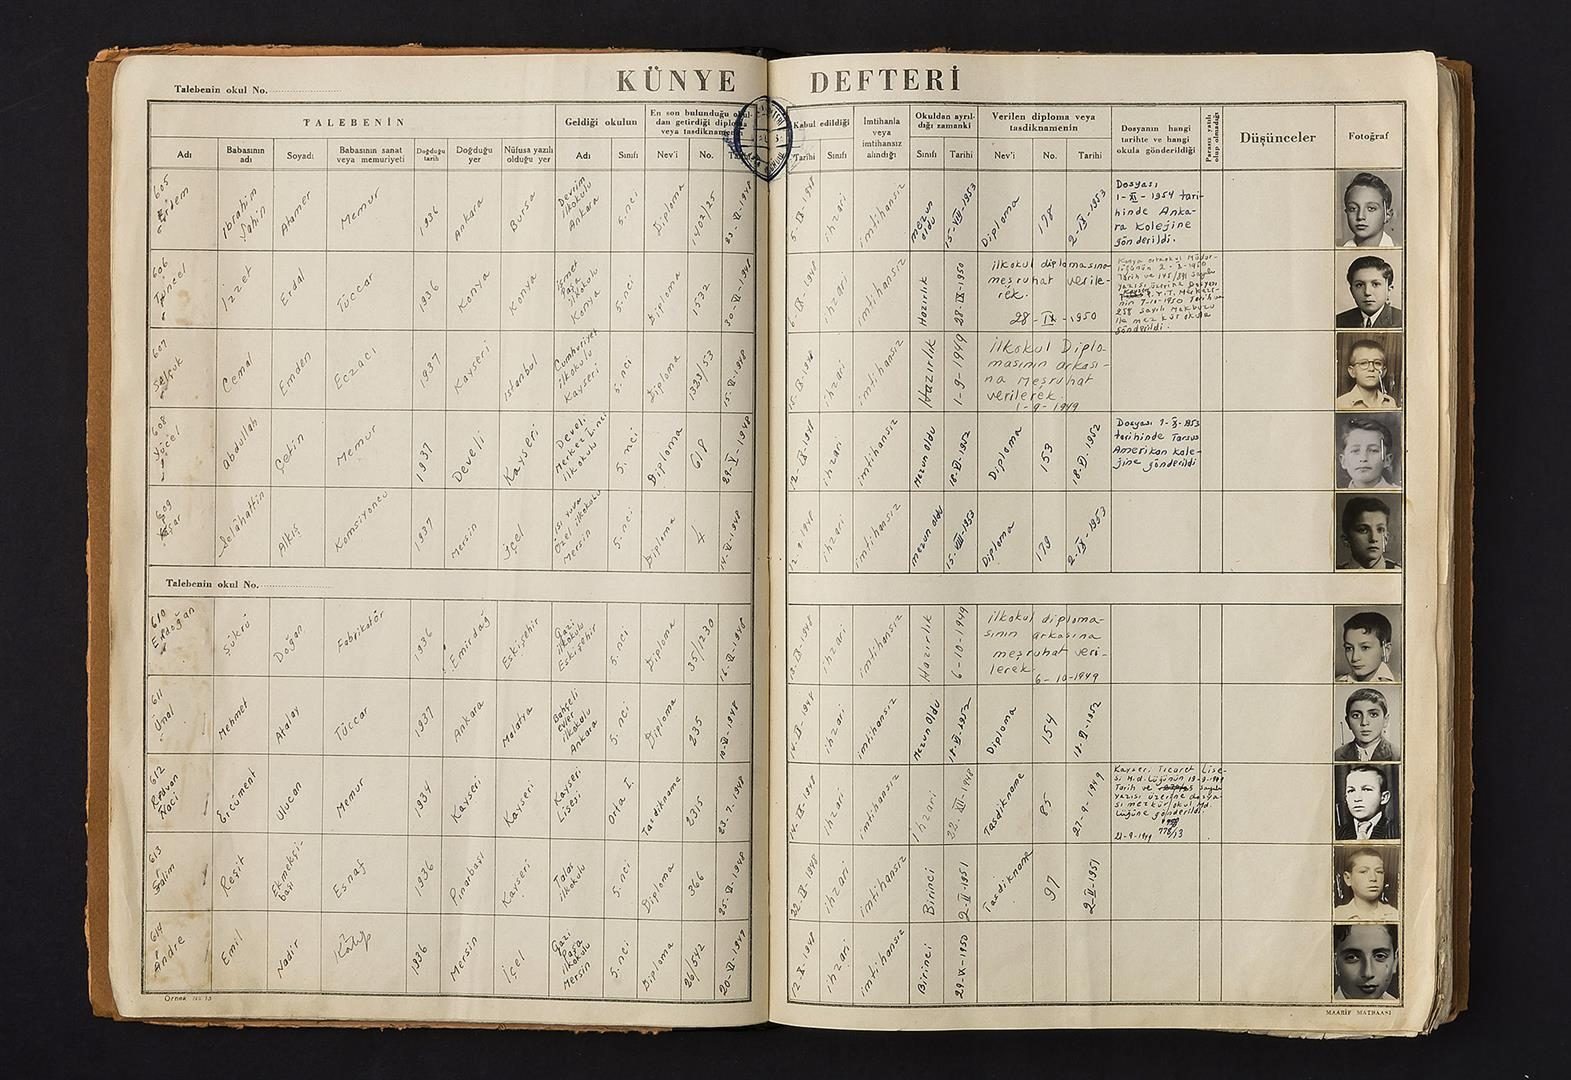 KÜNYE DEFTERİ
Talebenin okul No.
TALEBENİN
Geldiği okulun
En son bulunduğu okul-
dan getirdiği diploma
veya tasdiknamenin
Kabul edildiği
İmtihanla
veya
imtihansız
alındığı
Okuldan ayrıl-
dığı zamanki
Verilen diploma veya
tasdiknamenin
Dosyanın hangi
tarihte ve hangi
okula gönderildiği
Parasız yatılı
olup olmadığı
Düşünceler
Fotoğraf
Adı
Babasının
adı
Soyadı
Babasının sanat
veya memuriyeti
Doğduğu
tarih
Doğduğu
yer
Nüfusa yazılı
olduğu yer
Adı
Sınıfı
Nev'i
No.
Tarihi
Sınıfı
Sınıfı
Tarihi
Nev'i
No.
Tarihi
605
Erdem
İbrahim
Şahin
Atamer
Memur
1936
Ankara
Bursa
Devrim
ilkokulu
Ankara
5.nci
Diploma
1402/25
5-IX-1948
ihzari
imtihansız
mezun
oldu
15-VIII-1953
Diploma
178
2-IX-1953
Dosyası
1-XI-1954 tari-
hinde Anka-
ra Kolejine
gönderildi.
606
Tuncel
İzzet
Erdal
Tüccar
1936
Konya
Konya
İsmet
Paşa
ilkokulu
Konya
5.nci
Diploma
1532
30-VI-1948
6-IX-1948
ihzari
imtihansız
Hazırlık
28-IX-1950
ilkokul diplomasına
meşruhat verile-
rek.
28-IX-1950
Konya ortaokul Müdür-
lüğünün 2-X-1950
Tarih ve 145/391 sayılı
yazısı üzerine Dosyası
nin 7-10-1950 Tarih ve
258 sayılı Makbuzu
ile mezkûr okula
gönderildi.
607
Selçuk
Cemal
Emden
Eczacı
1937
Kayseri
istanbul
Cumhuriyet
ilkokulu
Kayseri
5.nci
Diploma
1333/53
15-VI-1948
15-IX-1948
ihzari
imtihansız
Hazırlık
1-9-1949
ilkokul Diplo-
masının arkası-
na Meşruhat
verilerek.
1-9-1949
608
Yücel
Abdullah
Çetin
Memur
1937
Develi
Kayseri
Develi
Merkez I.nci
ilkokulu
5.nci
Diploma
618
29-V-1948
12-IX-1948
ihzari
imtihansız
Mezun oldu
18-VI-1952
Diploma
153
18-VI-1952
Dosyası 1-X-1953
tarihinde Tarsus
Amerikan kole-
jine gönderildi
609
Yaşar
Selâhattin
Alkış
Komsiyoncu
1937
Mersin
İçel
Özel ilkokulu
Mersin
5.nci
Diploma
4
14-VI-1948
12-9-1948
ihzari
imtihansız
mezun oldu
15-VIII-1953
Diploma
179
2-IX-1953
Talebenin okul No.
610
Erdoğan
Şükrü
Doğan
Fabrikatör
1936
Emirdağ
Eskişehir
Gazi
ilkokulu
Eskişehir
5.nci
Diploma
35/1230
16-VI-1948
13-IX-1948
ihzari
imtihansız
Hazırlık
6-10-1949
ilkokul diploma-
sının arkasına
meşruhat veri-
lerek.
6-10-1949
611
Ünal
Mehmet
Atalay
Tüccar
1937
Ankara
Malatya
Bahçeli
evler
ilkokulu
Ankara
5.nci
Diploma
235
10-VI-1948
14-IX-1948
ihzari
imtihansız
Mezun oldu
18-VI-1952
Diploma
154
18-VI-1952
612
Rıdvan
Naci
Ercüment
Ulucan
Memur
1934
Kayseri
Kayseri
Kayseri
Lisesi
Orta I.
Tasdikname
2315
23-7-1948
14-IX-1948
ihzari
imtihansız
ihzari
22-XII-1948
Tasdikname
85
27-9-1949
Kayseri Ticaret Lise-
si Md.lüğünün 19-9-1949
Tarih ve sayılı
yazısı üzerine dosya-
sı mezkûr okul Md.
lüğüne gönderildi.
21-9-1949 778/13
613
Salim
Reşit
Ekmekçi-
başı
Esnaf
1936
Pınarbaşı
Kayseri
Talas
ilkokulu
5.nci
Diploma
366
25-VI-1948
22-IX-1948
ihzari
imtihansız
Birinci
2-II-1951
Tasdikname
97
2-II-1951
614
Andre
Emil
Nadir
Kâtip
1936
Mersin
İçel
Gazi
Paşa
ilkokulu
Mersin
5.nci
Diploma
26/542
20-VI-1947
12-X-1948
ihzari
imtihansız
Birinci
29-IX-1950
Örnek
MAARİF MATBAASI